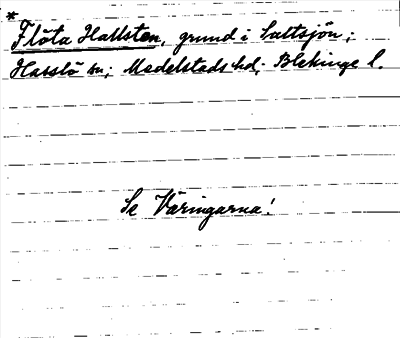 * Flöta Hallsten, grund i Saltsjön;
Hasslö sn; Medelstads hd; Blekinge l.
Se Väringarna!